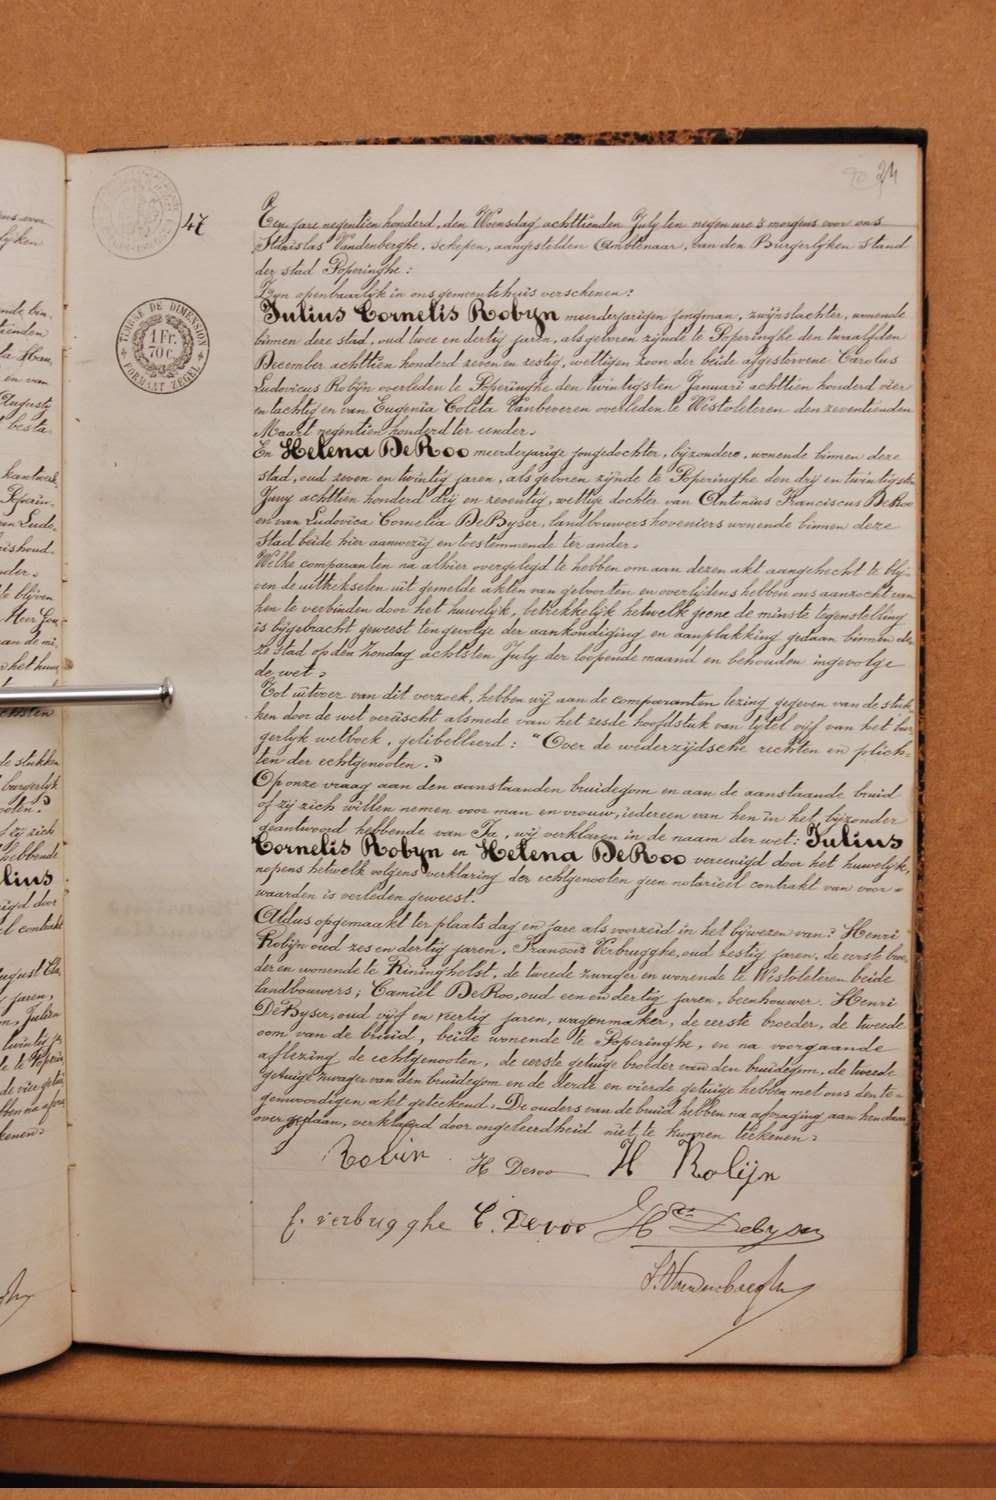 24
47
TIMBRE DE DIMENSION
1 Fr. 70 c.
FORMAAT ZEGEL
Ten jare negentien honderd, den Woensdag achttienden July ten negen ure 's morgens voor ons
Stanislas Vandenberghe, schepen, aangestelden Ambtenaar van den Burgerlyken stand
der stad Poperinghe:
Zyn openbaarlyk in ons gemeentehuis verschenen:
Julius Cornelis Robyn meerderjarigen jongman, zwijnslachter, wonende
binnen deze stad, oud twee en dertig jaren, als geboren zijnde te Poperinghe den twaalfden
December achttien honderd zeven en zestig, wettigen zoon der beide afgestorvene Carolus
Ludovicus Robijn overleden te Poperinghe den twintigsten Januari achttien honderd vier
en tachtig en van Eugenia Coleta Vanbeveren overleden te Westvleteren den zeventienden
Maart negentien honderd ter eender.
En Helena De Roo meerderjarige jongedochter, bijzondere, wonende binnen deze
stad, oud zeven en twintig jaren, als geboren zijnde te Poperinghe den drij en twintigsten
Juny achttien honderd drij en zeventig, wettige dochter van Antonius Franciscus De Roo
en van Ludovica Cornelia De Byser, landbouwers hoveniers wonende binnen deze
stad beide hier aanwezig en toestemmende ter ander.
Welke comparanten na alhier overgelegd te hebben om aan dezen akt aangehecht te blij-
ven de uittrekselen uit gemelde akten van geboorten en overlijdens hebben ons aanzocht van
hen te verbinden door het huwelijk, betrekkelijk hetwelk geene de minste tegenstelling
is bijgebracht geweest ten gevolge der aankondiging en aanplakking gedaan binnen de-
ze stad op den Zondag achtsten July der loopende maand en behouden ingevolge
de wet.
Tot uitvoer van dit verzoek, hebben wij aan de comparanten lezing gegeven van de stuk-
ken door de wet vereischt alsmede van het zesde hoofdstuk van tytel vijf van het bur-
gerlyk wetboek, gelibelleerd: "Over de wederzijdsche rechten en plich-
ten der echtgenooten."
Op onze vraag aan den aanstaanden bruidegom en aan de aanstaande bruid
of zij zich willen nemen voor man en vrouw, iedereen van hen in het bijzonder
geantwoord hebbende van Ja, wij verklaren in de naam der wet: Julius
Cornelis Robyn en Helena De Roo vereenigd door het huwelijk,
nopens hetwelk volgens verklaring der echtgenooten geen notarieel contrakt van voor-
waarden is verleden geweest.
Aldus opgemaakt ter plaats dag en jare als voorzeid in het bijwezen van: Henri
Robijn oud zes en dertig jaren, Francois Verbrugghe, oud zestig jaren, de eerste broe-
der en wonende te Reninghelst, de tweede zwager en wonende te Westvleteren beide
landbouwers; Camiel De Roo, oud een en dertig jaren, beenhouwer. Henri
De Byser, oud vijf en veertig jaren, wagenmaker, de eerste broeder, de tweede
oom van de bruid, beide wonende te Poperinghe, en na voorgaande
aflezing de echtgenooten, de eerste getuige broeder van den bruidegom, de tweede
getuige zwager van den bruidegom en de derde en vierde getuige hebben met ons den te-
genwoordigen akt geteekend. De ouders van de bruid hebben na afvraging aan hen daar
over gedaan, verklaard door ongeleerdheid niet te kunnen teekenen.
Robin H Deroo H Robijn
f. verbrugghe C. Deroo Hri Debyser
S. Vandenberghe